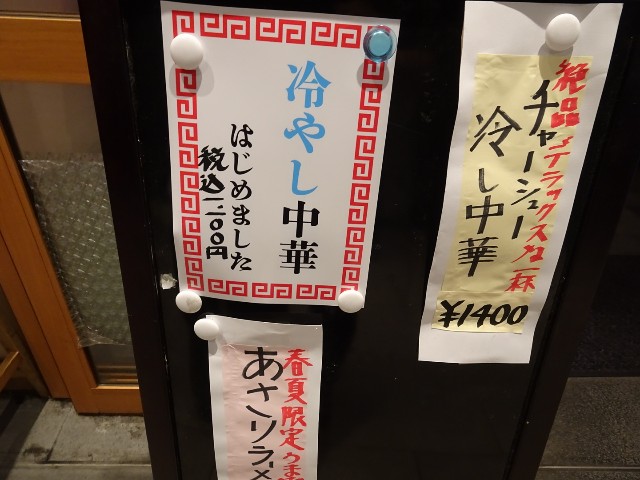 絶品デラックスな一杯
チャーシュー
冷し中華
¥1400
冷やし中華
はじめました
税込一一〇〇円
春夏限定うま
あさりラーメ